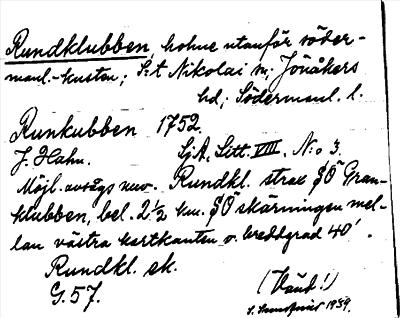 Rundklubben, holme utanför söder-
manl.-kusten; S:t Nikolai sn; Jönåkers
hd; Södermanl. l.
Runkubben 1752.
J. Hahn. SjA, Litt. VIII, N:o 3.
Möjl. avsågs nuv. Rundkl. strax SÖ Gran-
klubben, bel. 2 1/2 km. SÖ skärningen mel-
lan västra kartkanten o. breddgrad 40'.
Rundkl. sk.
G. 57. (Vänd!)
1939.